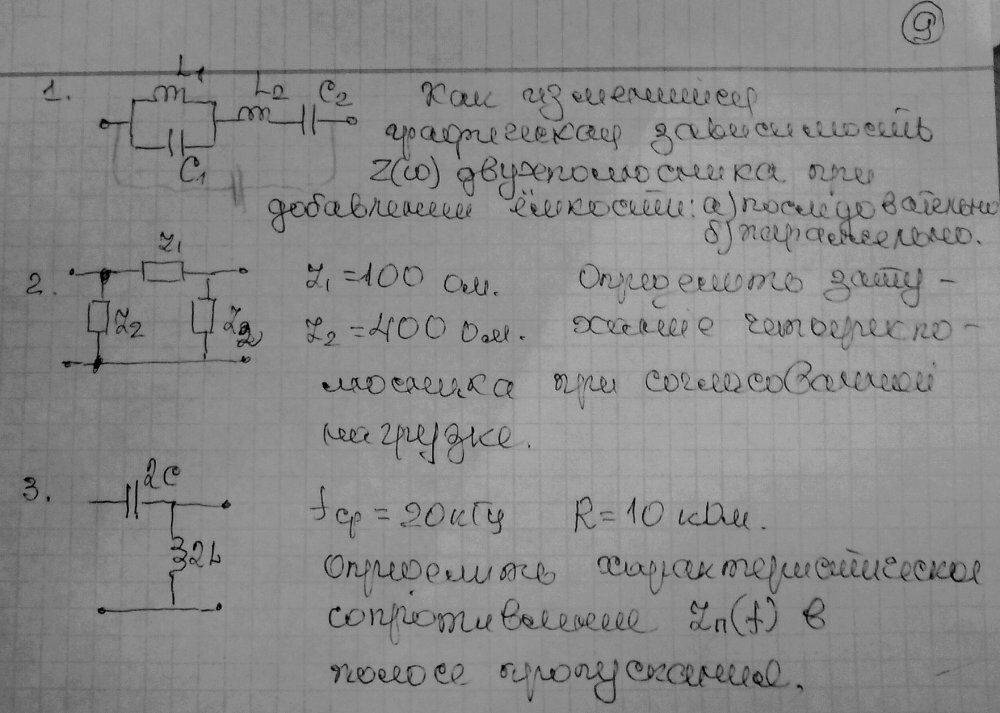 9
1.
L1
L2 C2
C1
Как изменится
графическая зависимость
Z(ω) двухполюсника при
добавлении ёмкости: а) последовательно
б) параллельно.
2.
Z1
Z2
Z2
Z1 = 100 Ом. Определить зату-
Z2 = 400 Ом. хание четырехпо-
люсника при согласованной
нагрузке.
3.
2C
2L
fср = 20 кГц R = 10 кОм.
Определить характеристическое
сопротивление Zп(f) в
полосе пропускания.